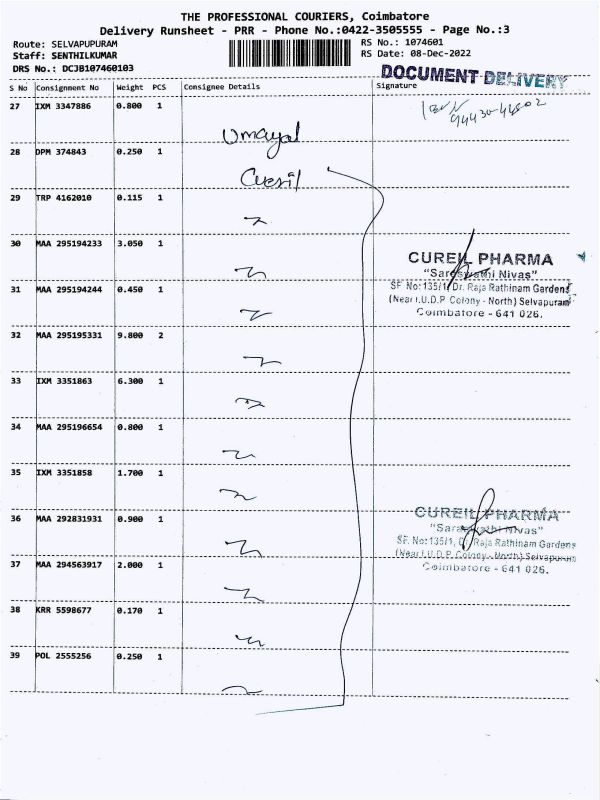 THE PROFESSIONAL COURIERS, Coimbatore
Delivery Runsheet - PRR - Phone No.:0422-3505555 - Page No.:3
Route: SELVAPUPURAM
RS No.: 1074601
Staff: SENTHILKUMAR
RS Date: 08-Dec-2022
DRS No.: DCJB107460103
DOCUMENT DELIVERY
S No Consignment No Weight PCS Consignee Details Signature
27 IXM 3347886 0.800 1
Umayal
28 DPM 374843 0.250 1
29 TRP 4162010 0.115 1
30 MAA 295194233 3.050 1
CUREIL PHARMA
"Saraswathi Nivas"
SF. No: 135/1, Dr. Raja Rathinam Gardens
(Near I.U.D.P. Colony - North) Selvapuram
Coimbatore - 641 026.
31 MAA 295194244 0.450 1
32 MAA 295195331 9.800 2
33 IXM 3351863 6.300 1
34 MAA 295196654 0.800 1
35 IXM 3351858 1.700 1
36 MAA 292831931 0.900 1
CUREIL PHARMA
"Saraswathi Nivas"
SF. No: 135/1, Dr. Raja Rathinam Gardens
(Near I.U.D.P. Colony - North) Selvapuram
Coimbatore - 641 026.
37 MAA 294563917 2.000 1
38 KRR 5598677 0.170 1
39 POL 2555256 0.250 1